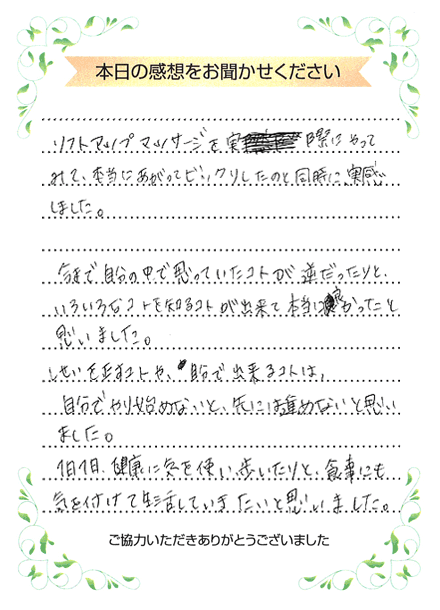 本日の感想をお聞かせください
リフトアップマッサージを実際にやって
みて、本当にあがってビックリしたのと同時に、実感
しました。
今まで自分の中で思っていたコトが逆だったりと、
いろいろなコトを知るコトが出来て本当に良かったと
思いました。
しせいを正すコトや、自分で出来るコトは、
自分でやり始めないと、先には進めないと思い
ました。
1日1日、健康に気を使い、歩いたりと、食事にも
気を付けて生活していきたいと思いました。
ご協力いただきありがとうございました